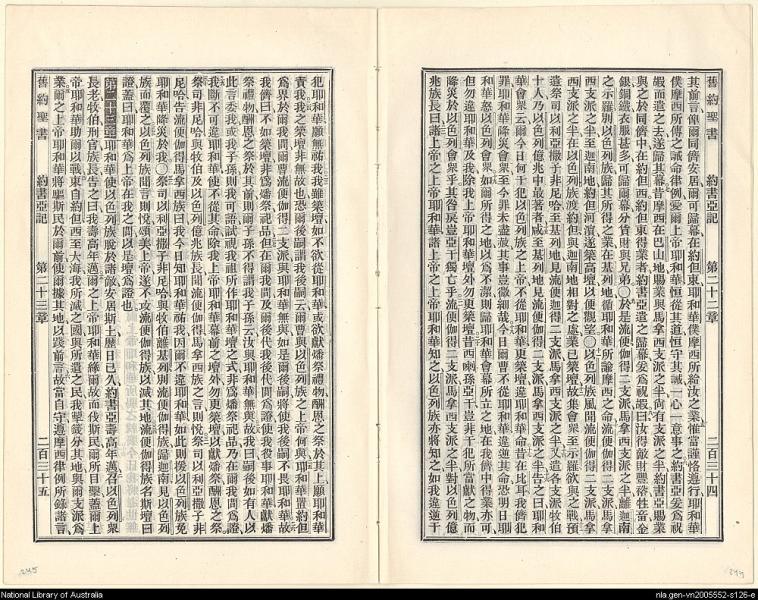 舊約聖書 約書亞記 第二十二章 二百三十四
其前言俾爾同儕安居爾可歸幕在約但東耶和華僕摩西所給汝之業惟當謹恪遵行耶和華
僕摩西所傳之誡命律例愛爾上帝耶和華恒從其道恒守其誡一心一意事之約書亞爰爲祝
嘏而遣之去遂歸其幕昔摩西在巴山地賜業與馬拿西支派之半尚有支派之半約書亞賜業
與之於同儕中在約但西約但東得業者約書亞遣之歸幕爰爲祝嘏曰汝得敵財豐裕牲畜金
銀銅鐵衣服甚多可歸爾幕分貨財與兄弟〇於是流便伽得二支派馬拿西支派之半離迦南
之示羅別以色列族歸其所得之業在基列地循耶和華所諭摩西之命流便伽得二支派馬拿
西支派之半至迦南地約但河濱遂築高壇以便觀望〇以色列族風聞流便伽得二支派馬拿
西支派之半在以色列族渡約但與迦南地相對之處業已築壇故集會衆至示羅欲與之戰預
遣祭司以利亞撒子非尼哈至基列地見流便迦得二支派馬拿西支派之半又遣各支派牧伯
十人乃以色列億兆中最著者咸至基列地見流便伽得二支派馬拿西支派之半告之曰耶和
華會衆云爾今日何干犯以色列族之上帝不從耶和華更築壇違耶和華命昔在比耳我儕犯
罪耶和華降災會衆至今罪未盡祓其事豈微細哉今日爾曹不從耶和華違逆其命明日耶
和華怒以色列會衆如爾所得之地以爲不潔則歸耶和華會幕所立之地在我儕中得業亦可
但勿違耶和華及我除我上帝耶和華壇外勿更築壇昔西喇孫亞干豈非干犯所當獻之物而
降災於以色列會衆乎其咎戾豈亞干獨亡乎流便伽得二支派馬拿西支派之半對以色列億
兆族長曰諸上帝之上帝耶和華諸上帝之上帝耶和華知之以色列族亦將知之如我違逆干
犯耶和華願無祐我我雖築壇如不欲從耶和華或欲獻燔祭禮物酬恩之祭於其上願耶和華
責我我之築壇非無故也恐爾後嗣謂我後嗣云爾曹與以色列族之上帝何與耶和華置約但
爲界於爾我間爾曹流便伽得二支派與耶和華無與如是爾後嗣將使我後嗣不畏耶和華故
我儕曰不如築壇非爲燔祭祝品但在爾我間及爾後代我後代間爲證使我役事耶和華獻燔
祭禮物酬恩之祭於其前則爾子孫不得謂我子孫云汝與耶和華無與故我曰嗣後如有人以
此言委我或我子孫則我可語試視我祖所作耶和華壇之式非爲燔祭祝品乃在爾我間爲證
我斷不可違耶和華使不從其命除我上帝耶和華幕前之壇外勿更築壇以獻燔祭酬恩之祭
祭司非尼哈與牧伯及以色列億兆族長聞流便伽得馬拿西族之言則悅祭司以利亞撒子非
尼哈告流便伽得馬拿西族曰我今日知耶和華祐我因爾不違耶和華如此則援以色列族免
耶和華降災於我〇祭司以利亞撒子非尼哈與牧伯離基列別流便伽得族歸迦南見以色列
族而覆之以色列族聞言則悅頌美上帝遂不攻流便伽得族以滅其地流便伽得族名斯壇曰
證蓋曰耶和華爲上帝在我之間以是壇爲證也
第二十三章 耶和華使以色列族脫於諸敵安居斯土歷日已久約書亞壽高年邁召以色列衆
長老牧伯刑官族長告之曰我壽高年邁爾之上帝耶和華緣爾故而伐斯民爾所目擊蓋爾上
帝耶和華助爾以戰東自約但西至大海我所滅之國與所遺之民我掣籤分其地與爾支派爲
業爾之上帝耶和華將驅斯民於爾前使爾據其地以踐前言故當自守遵摩西律例所錄諸言
舊約聖書 約書亞記 第二十三章 二百三十五
245
244
National Library of Australia
nla.gen-vn2005552-s126-e